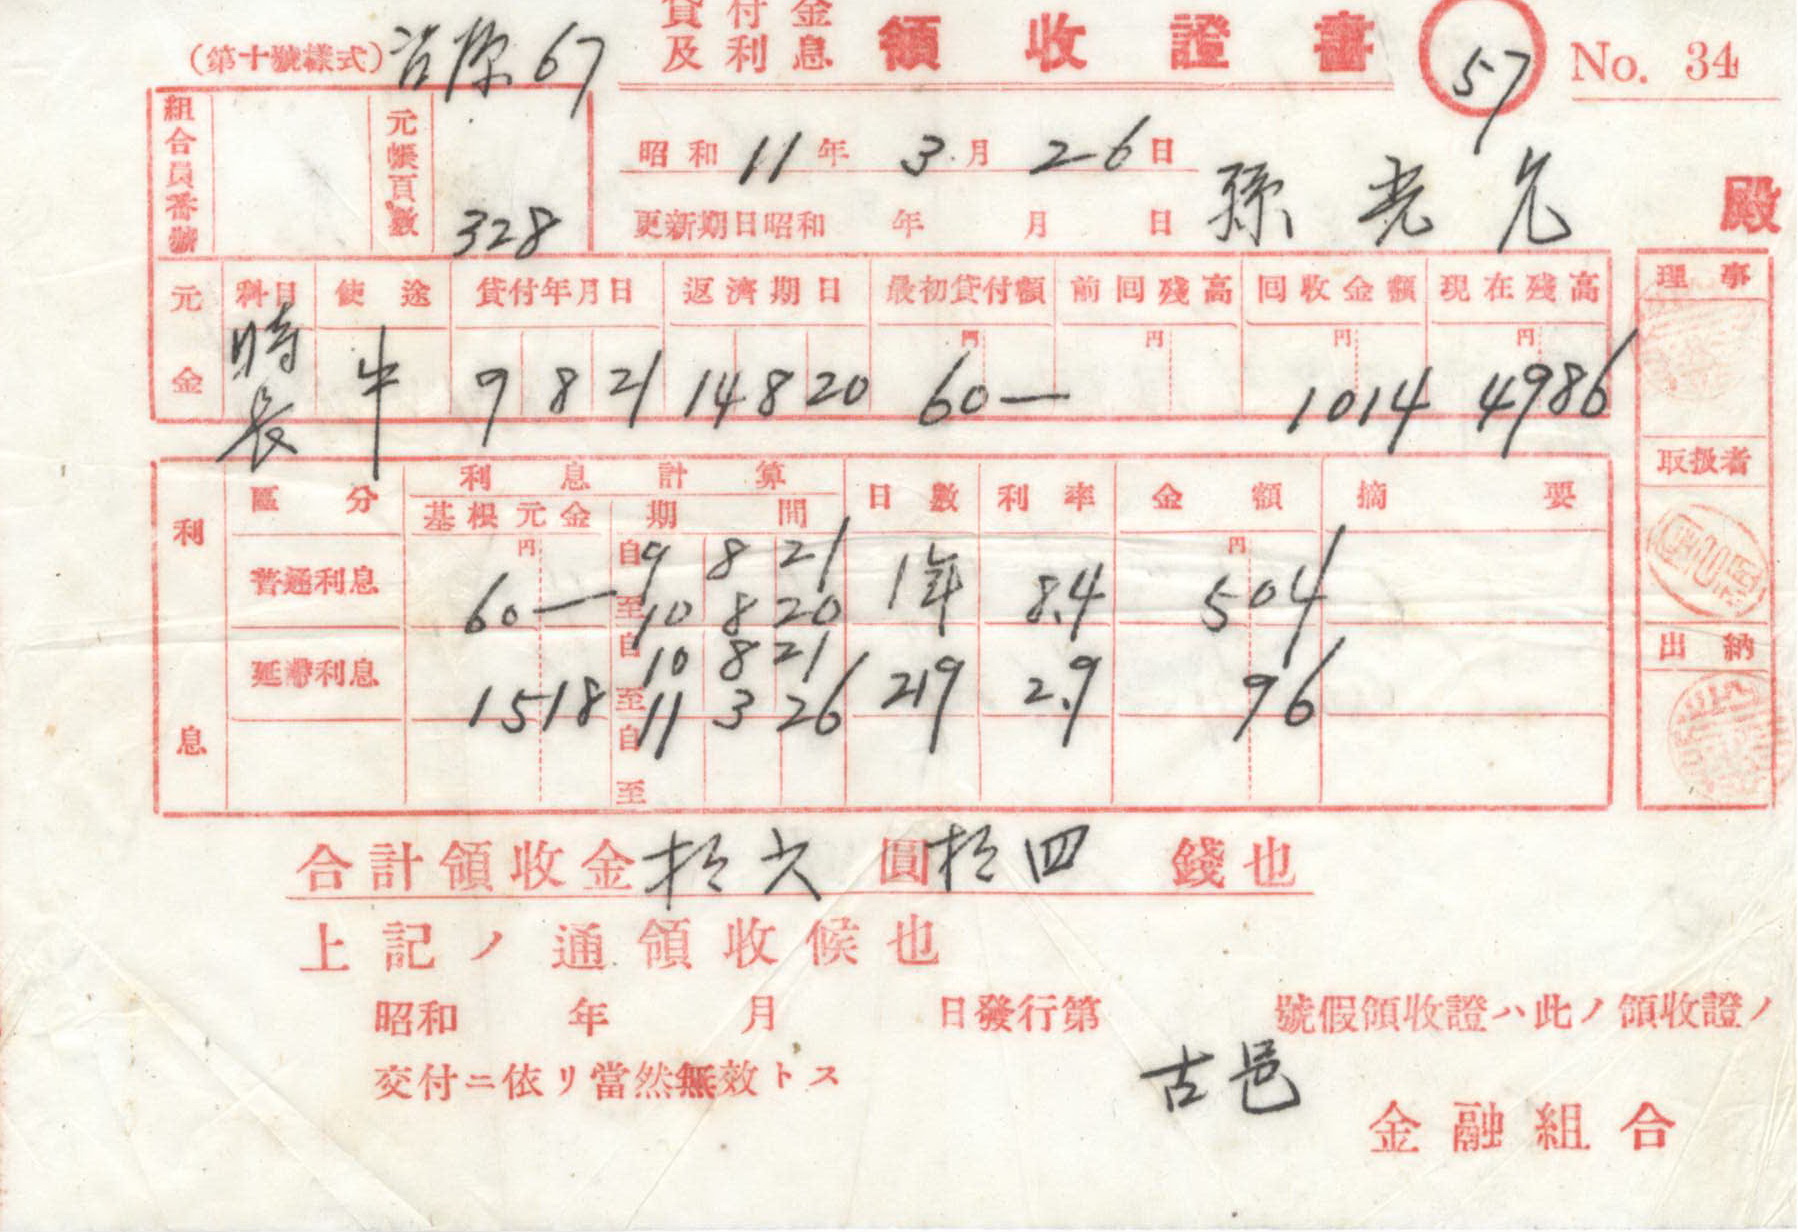 貸付金
及利息 領收證書 57 No. 34
(第十號樣式) 67
組合員番號 元帳頁數 328
昭和 11 年 3 月 26 日
更新期日昭和 年 月 日 孫 光 殿
元金 科目 使途 貸付年月日 返濟期日 最初貸付額 前回残高 回收金額 現在残高
円 円 円 円
特長 牛 9 8 21 14 8 20 60— 1014 4986
理事
取扱者
出納
利息 區分 利息計算 日數 利率 金額 摘要
基根元金 期間
普通利息 円 60— 自 9 8 21 至 10 8 20 1年 8.4 円 504
延滯利息 1518 自 10 8 21 至 11 3 26 219 2.9 96
自
至
合計領收金 拾六 圓 拾四 錢也
上記ノ通領收候也
昭和 年 月 日發行第 號假領收證ハ此ノ領收證ノ
交付ニ依リ當然無效トス
古邑
金融組合